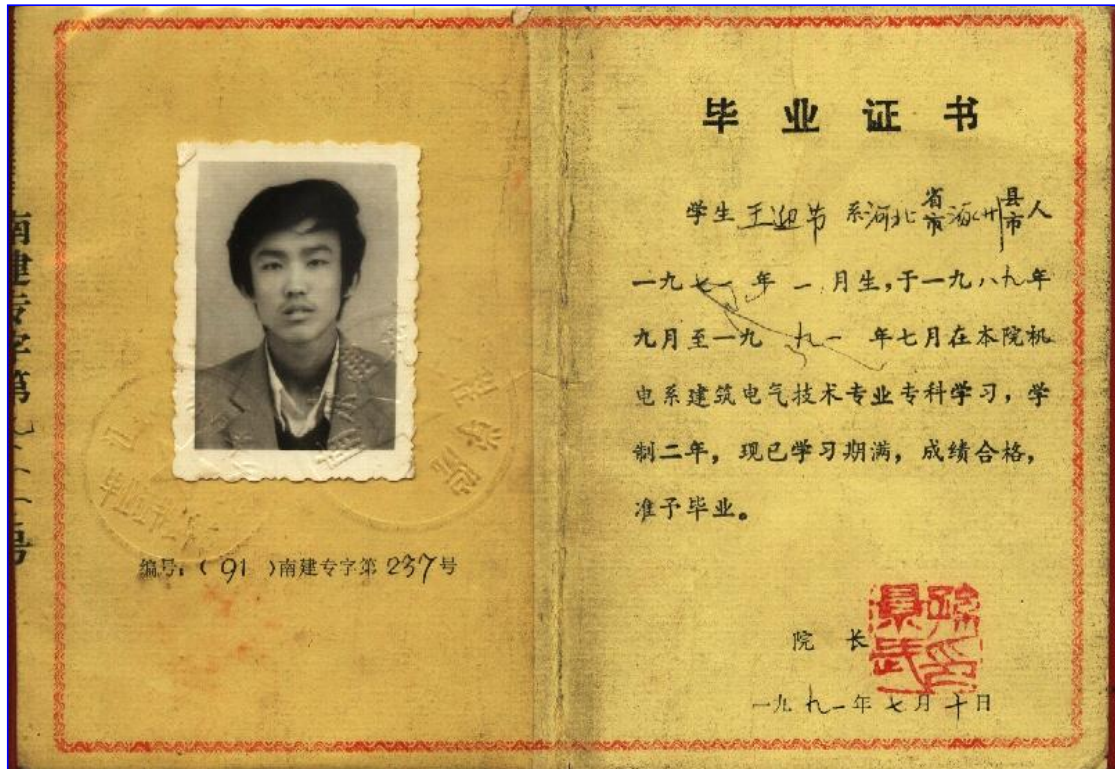 编号:(91)南建专字第237号
毕业证书
学生王迎节 系河北省市涿州县市人
一九七一年一月生,于一九八九年
九月至一九九一年七月在本院机
电系建筑电气技术专业专科学习,学
制二年,现已学习期满,成绩合格,
准予毕业。
院 长
一九九一年七月十日
南建专字第
号